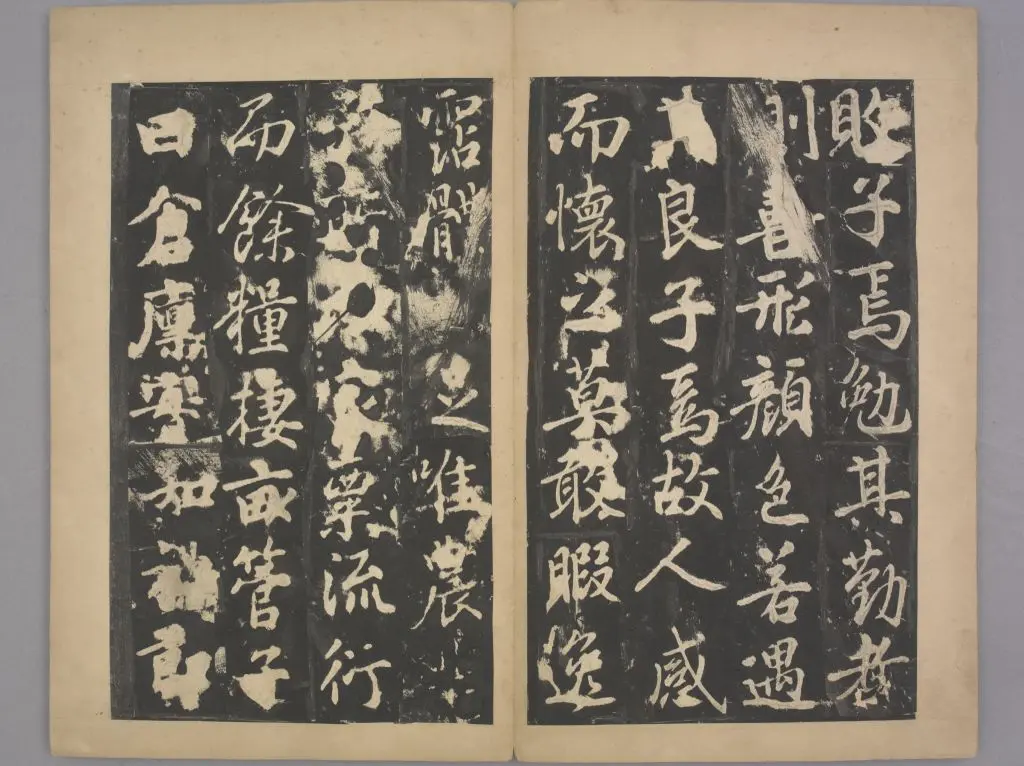 敗子焉勉其勤者
則喜形顏色若遇
良子焉故人感
而懷之莫敢暇逸
霑體足唯農
粟流行
而餘糧棲畝管子
曰倉廩實知禮節